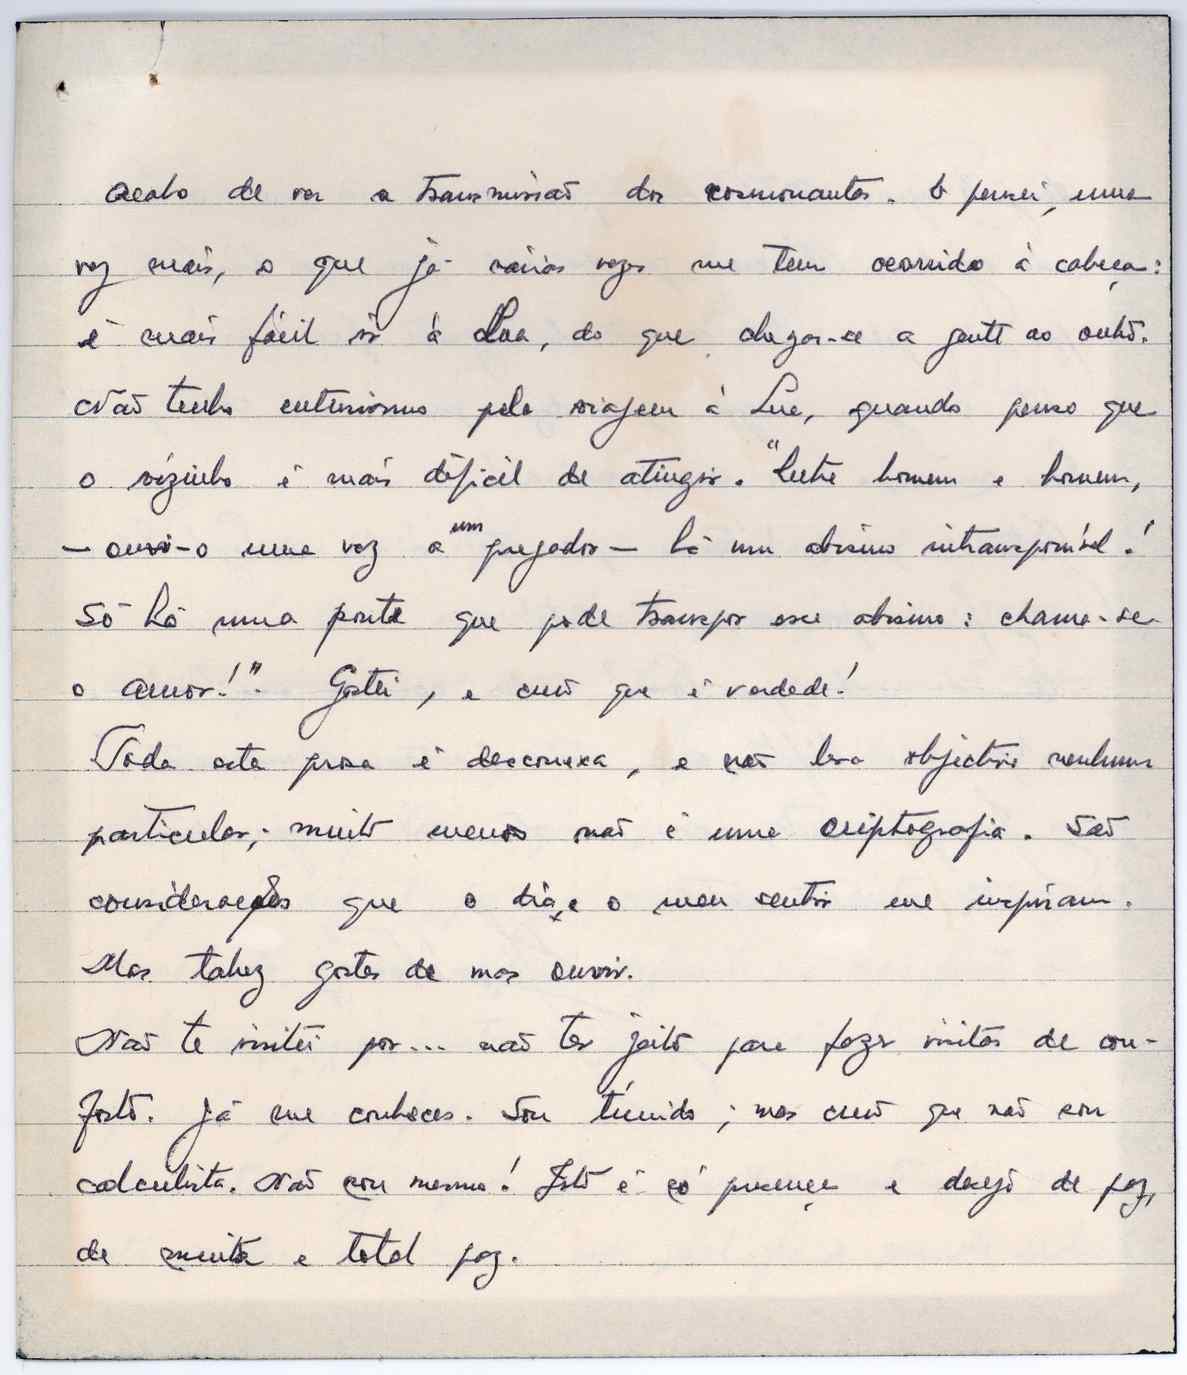 Acabo de ver a transmissão dos cosmonautas. E pensei, uma
vez mais, o que já várias vezes me tem ocorrido à cabeça:
é mais fácil ir à Lua, do que chegar-se a gente ao outro.
Não tenho entusiasmo pela viagem à Lua, quando penso que
o vizinho é mais difícil de atingir. "Entre homem e homem,
— ouvi-o uma vez a um pregador — há um abismo intransponível!
Só há uma ponte que pode transpor esse abismo: chama-se
o amor!". Gostei, e creio que é verdade!
Toda esta prosa é desconexa, e não leva objectivo nenhum
particular; muito menos não é uma criptografia. São
considerações que o dia, e o meu sentir me inspiram.
Mas talvez gostes de mas ouvir.
Não te visitei por... não ter jeito para fazer visitas de con-
forto. Já me conheces. Sou tímido; mas creio que não sou
calculista. Não sou mesmo! Isto é só presença e desejo de paz,
de muita e total paz.